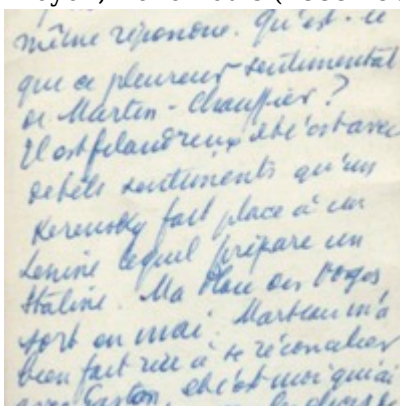 même réponde. Qu'est-ce
que ce pleureur sentimental
de Martin-Chauffier ?
Il est filandreux et c'est avec
de bels sentiments qu'un
Kerensky fait place à un
Lenine lequel prépare un
Staline. Ma Place des Vosges
sort en mai. Marteau m'a
bien fait rire à se réconcilier
avec Gaston, et c'est moi qui ai